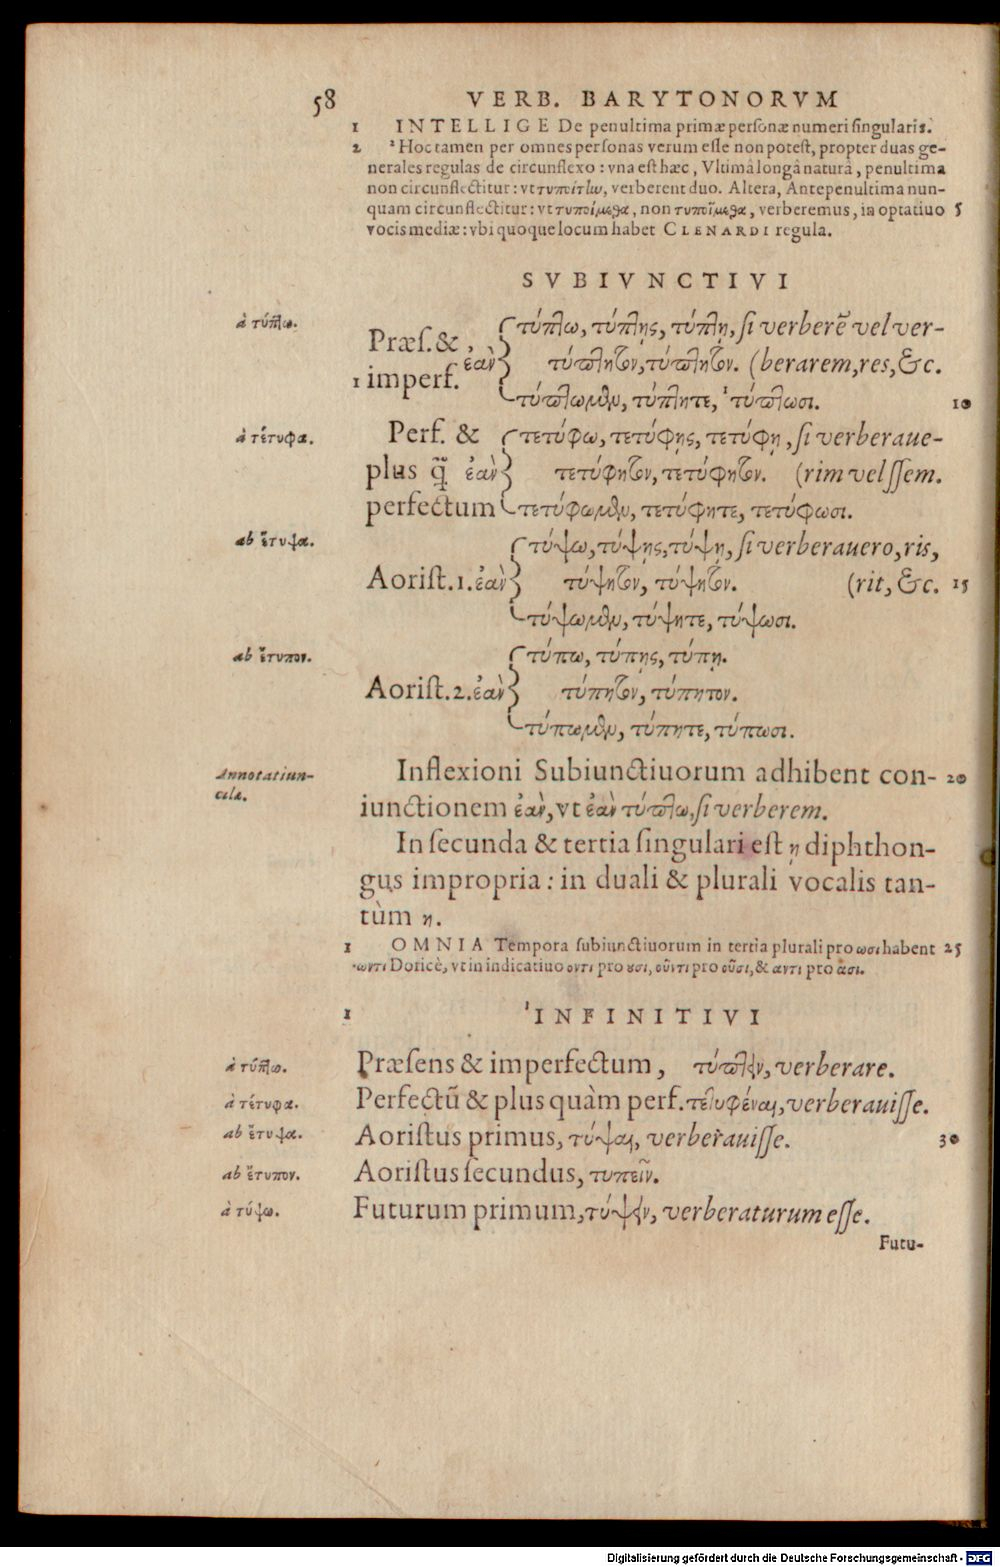 58 VERB. BARYTONORVM
1 INTELLIGE De penultima primæ personæ numeri singularis.
2 ²Hoc tamen per omnes personas verum esse non potest, propter duas ge-
nerales regulas de circunflexo : vna est hæc, Vltimâ longâ naturâ, penultima
non circunflectitur : vt τυποίτἰω, verberent duo. Altera, Antepenultima nun-
quam circunflectitur : vt τυποίμεθα, non τυποῖμεθα, verberemus, in optatiuo 5
vocis mediæ : vbi quoque locum habet CLENARDI regula.
SVBIVNCTIVI
à τύπτω.
Præs. & imperf. ἐὰν
τύπτω, τύπτῃς, τύπτῃ, si verberē vel ver-
τύπτητον, τύπτητον. (berarem, res, &c.
1 τύπτωμθυ, τύπτητε, ¹τύπτωσι. 10
à τέτυφα.
Perf. & plus q̃ perfectum ἐὰν
τετύφω, τετύφῃς, τετύφῃ, si verberaue-
τετύφητον, τετύφητον. (rim vel ssem.
τετύφωμθυ, τετύφητε, τετύφωσι.
ab ἔτυψα.
Aorist. 1. ἐὰν
τύψω, τύψῃς, τύψῃ, si verberauero, ris,
τύψητον, τύψητον. (rit, &c. 15
τύψωμθυ, τύψητε, τύψωσι.
ab ἔτυπον.
Aorist. 2. ἐὰν
τύπω, τύπῃς, τύπῃ.
τύπητον, τύπητον.
τύπωμθυ, τύπητε, τύπωσι.
Annotatiun-
culæ.
Inflexioni Subiunctiuorum adhibent con- 20
iunctionem ἐὰν, vt ἐὰν τύπτω, si verberem.
In secunda & tertia singulari est ῃ diphthon-
gus impropria : in duali & plurali vocalis tan-
tùm η.
1 OMNIA Tempora subiunctiuorum in tertia plurali pro ωσι habent 25
ωντι Doricè, vt in indicatiuo οντι pro ουσι, οῦντι pro οῦσι, & αντι pro ασι.
1 ¹INFINITIVI
à τύπτω. Præsens & imperfectum, τύπτειν, verberare.
à τέτυφα. Perfectū & plus quàm perf. τετυφέναι, verberauisse.
ab ἔτυψα. Aoristus primus, τύψαι, verberauisse. 30
ab ἔτυπον. Aoristus secundus, τυπεῖν.
à τύψω. Futurum primum, τύψειν, verberaturum esse.
Futu-
Digitalisierung gefördert durch die Deutsche Forschungsgemeinschaft - DFG